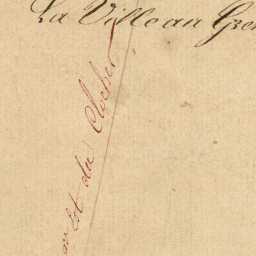 La Ville au Gre
Est du Clocher